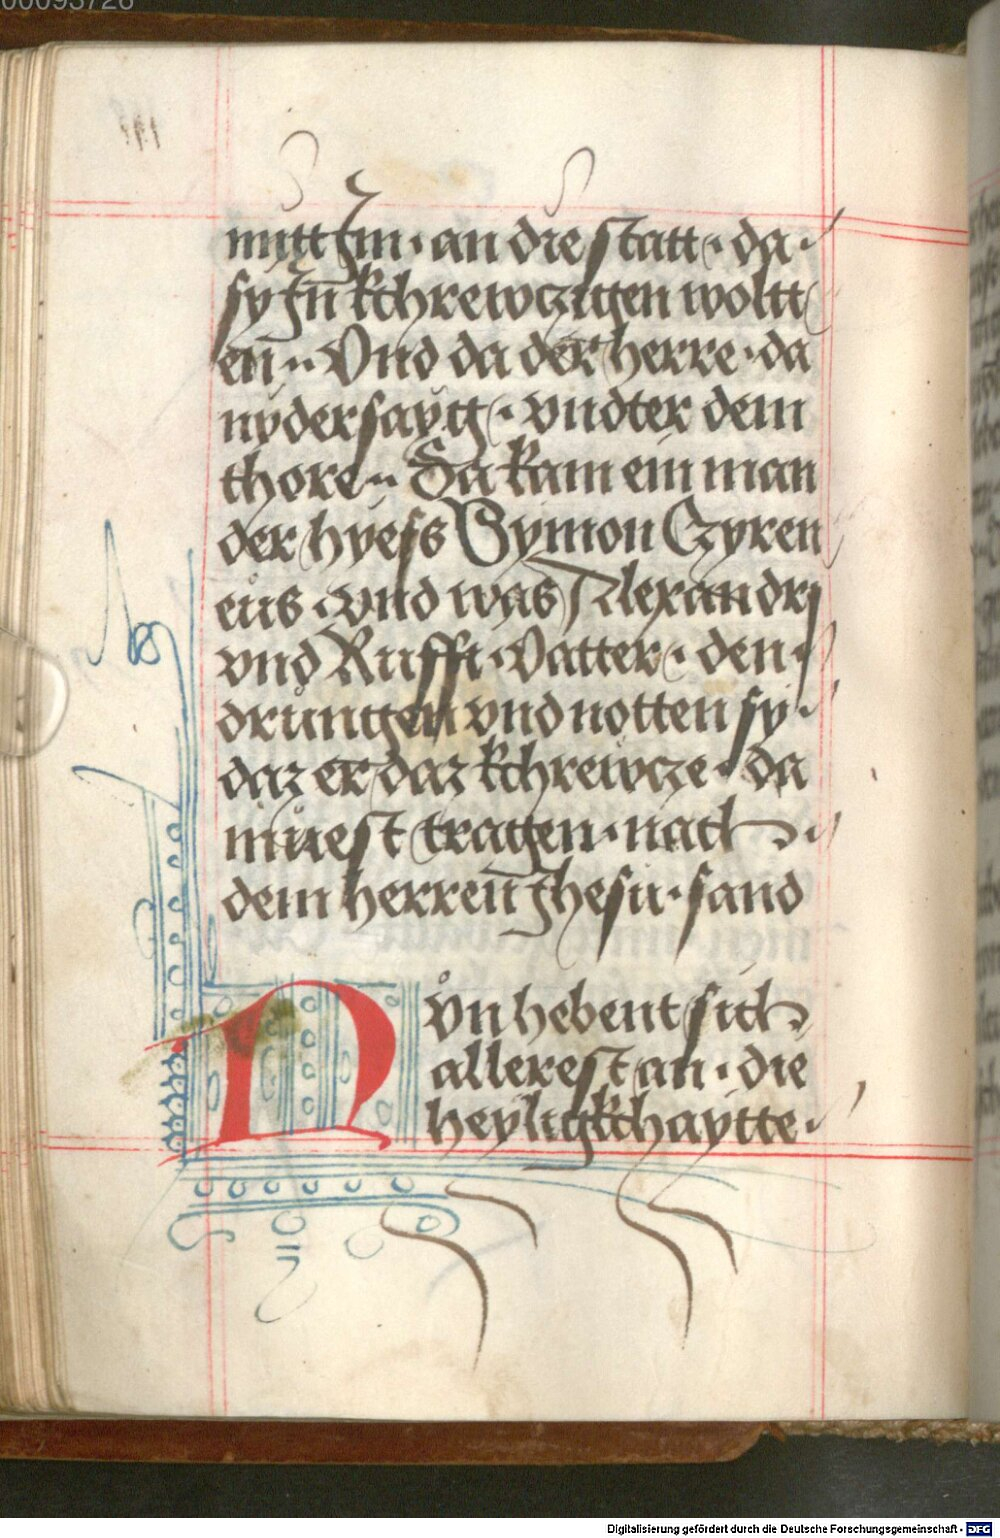 00093726
mitt Jm · an die statt · da ·
sy Jn̄ kchrewczigen woltt
en̄ ·· Vnd da der herre · da
nyder saytg · vndter dem
thore ·· Da kam ein man
der hyess Symon Czyren
eus · vnd was Alexandri
vnd Ruffi · Vatter · den ·
drungen vnd notten sy ·
daz er daz kchrewcze · da
můest tragen · nach ·
dem herren̄ Jhesu · sand
Nůn hebent sich
allerest an · die
heyligkchaytte ·
Digitalisierung gefördert durch die Deutsche Forschungsgemeinschaft - DFG